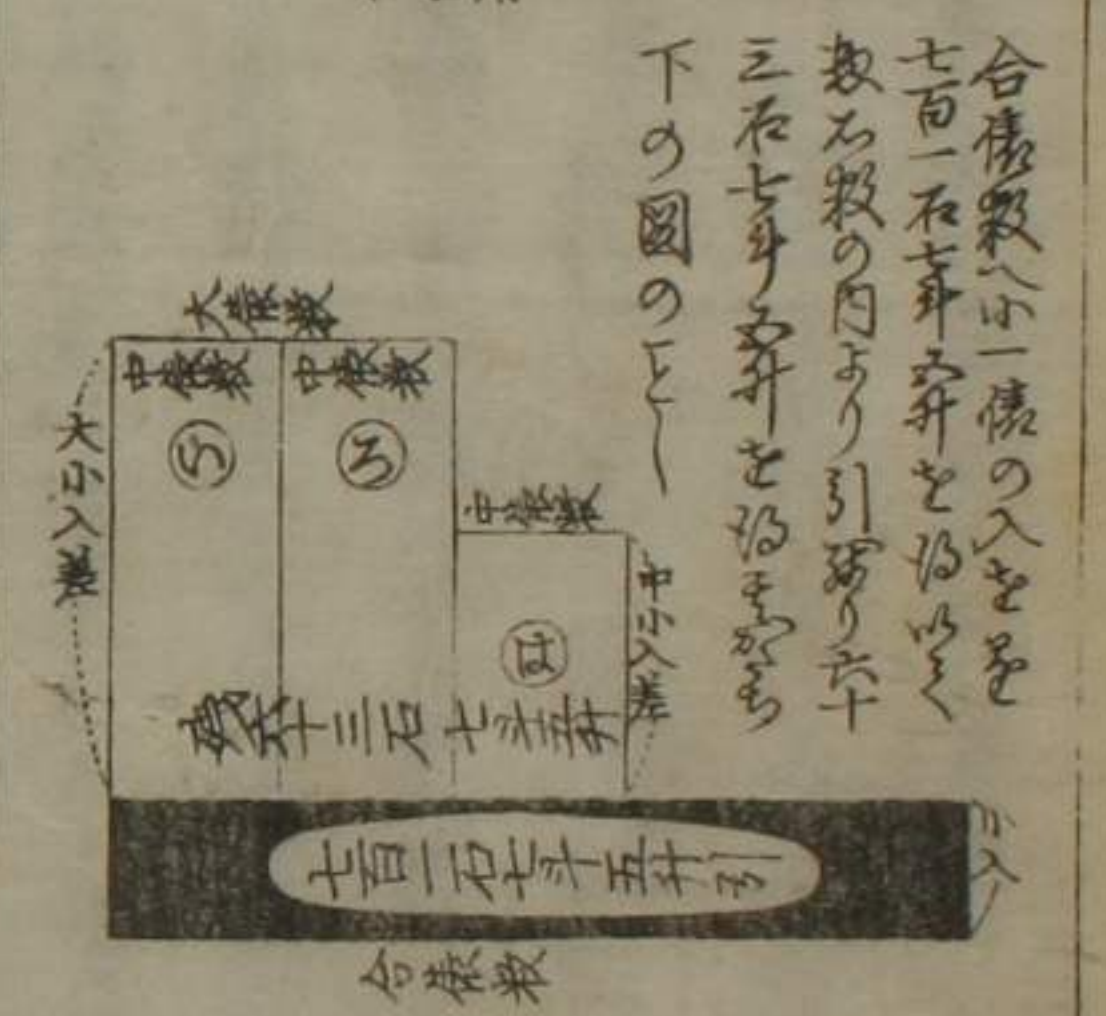 合俵数へ小一俵の入を乗
七百一石七斗五升を得以て
数石数の内より引残り六十
三石七斗五升を得
下の図のごとし
大俵数
中俵数
中俵数
ろ
中俵数
大小入差
中小入差
残六十三石七斗五升
七百一石七斗五升引
小入
合俵数